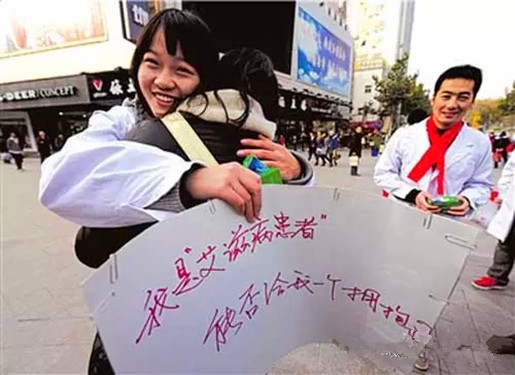 S-DEER / CONCEPT
我是"艾滋病患者"
能否给我一个拥抱?